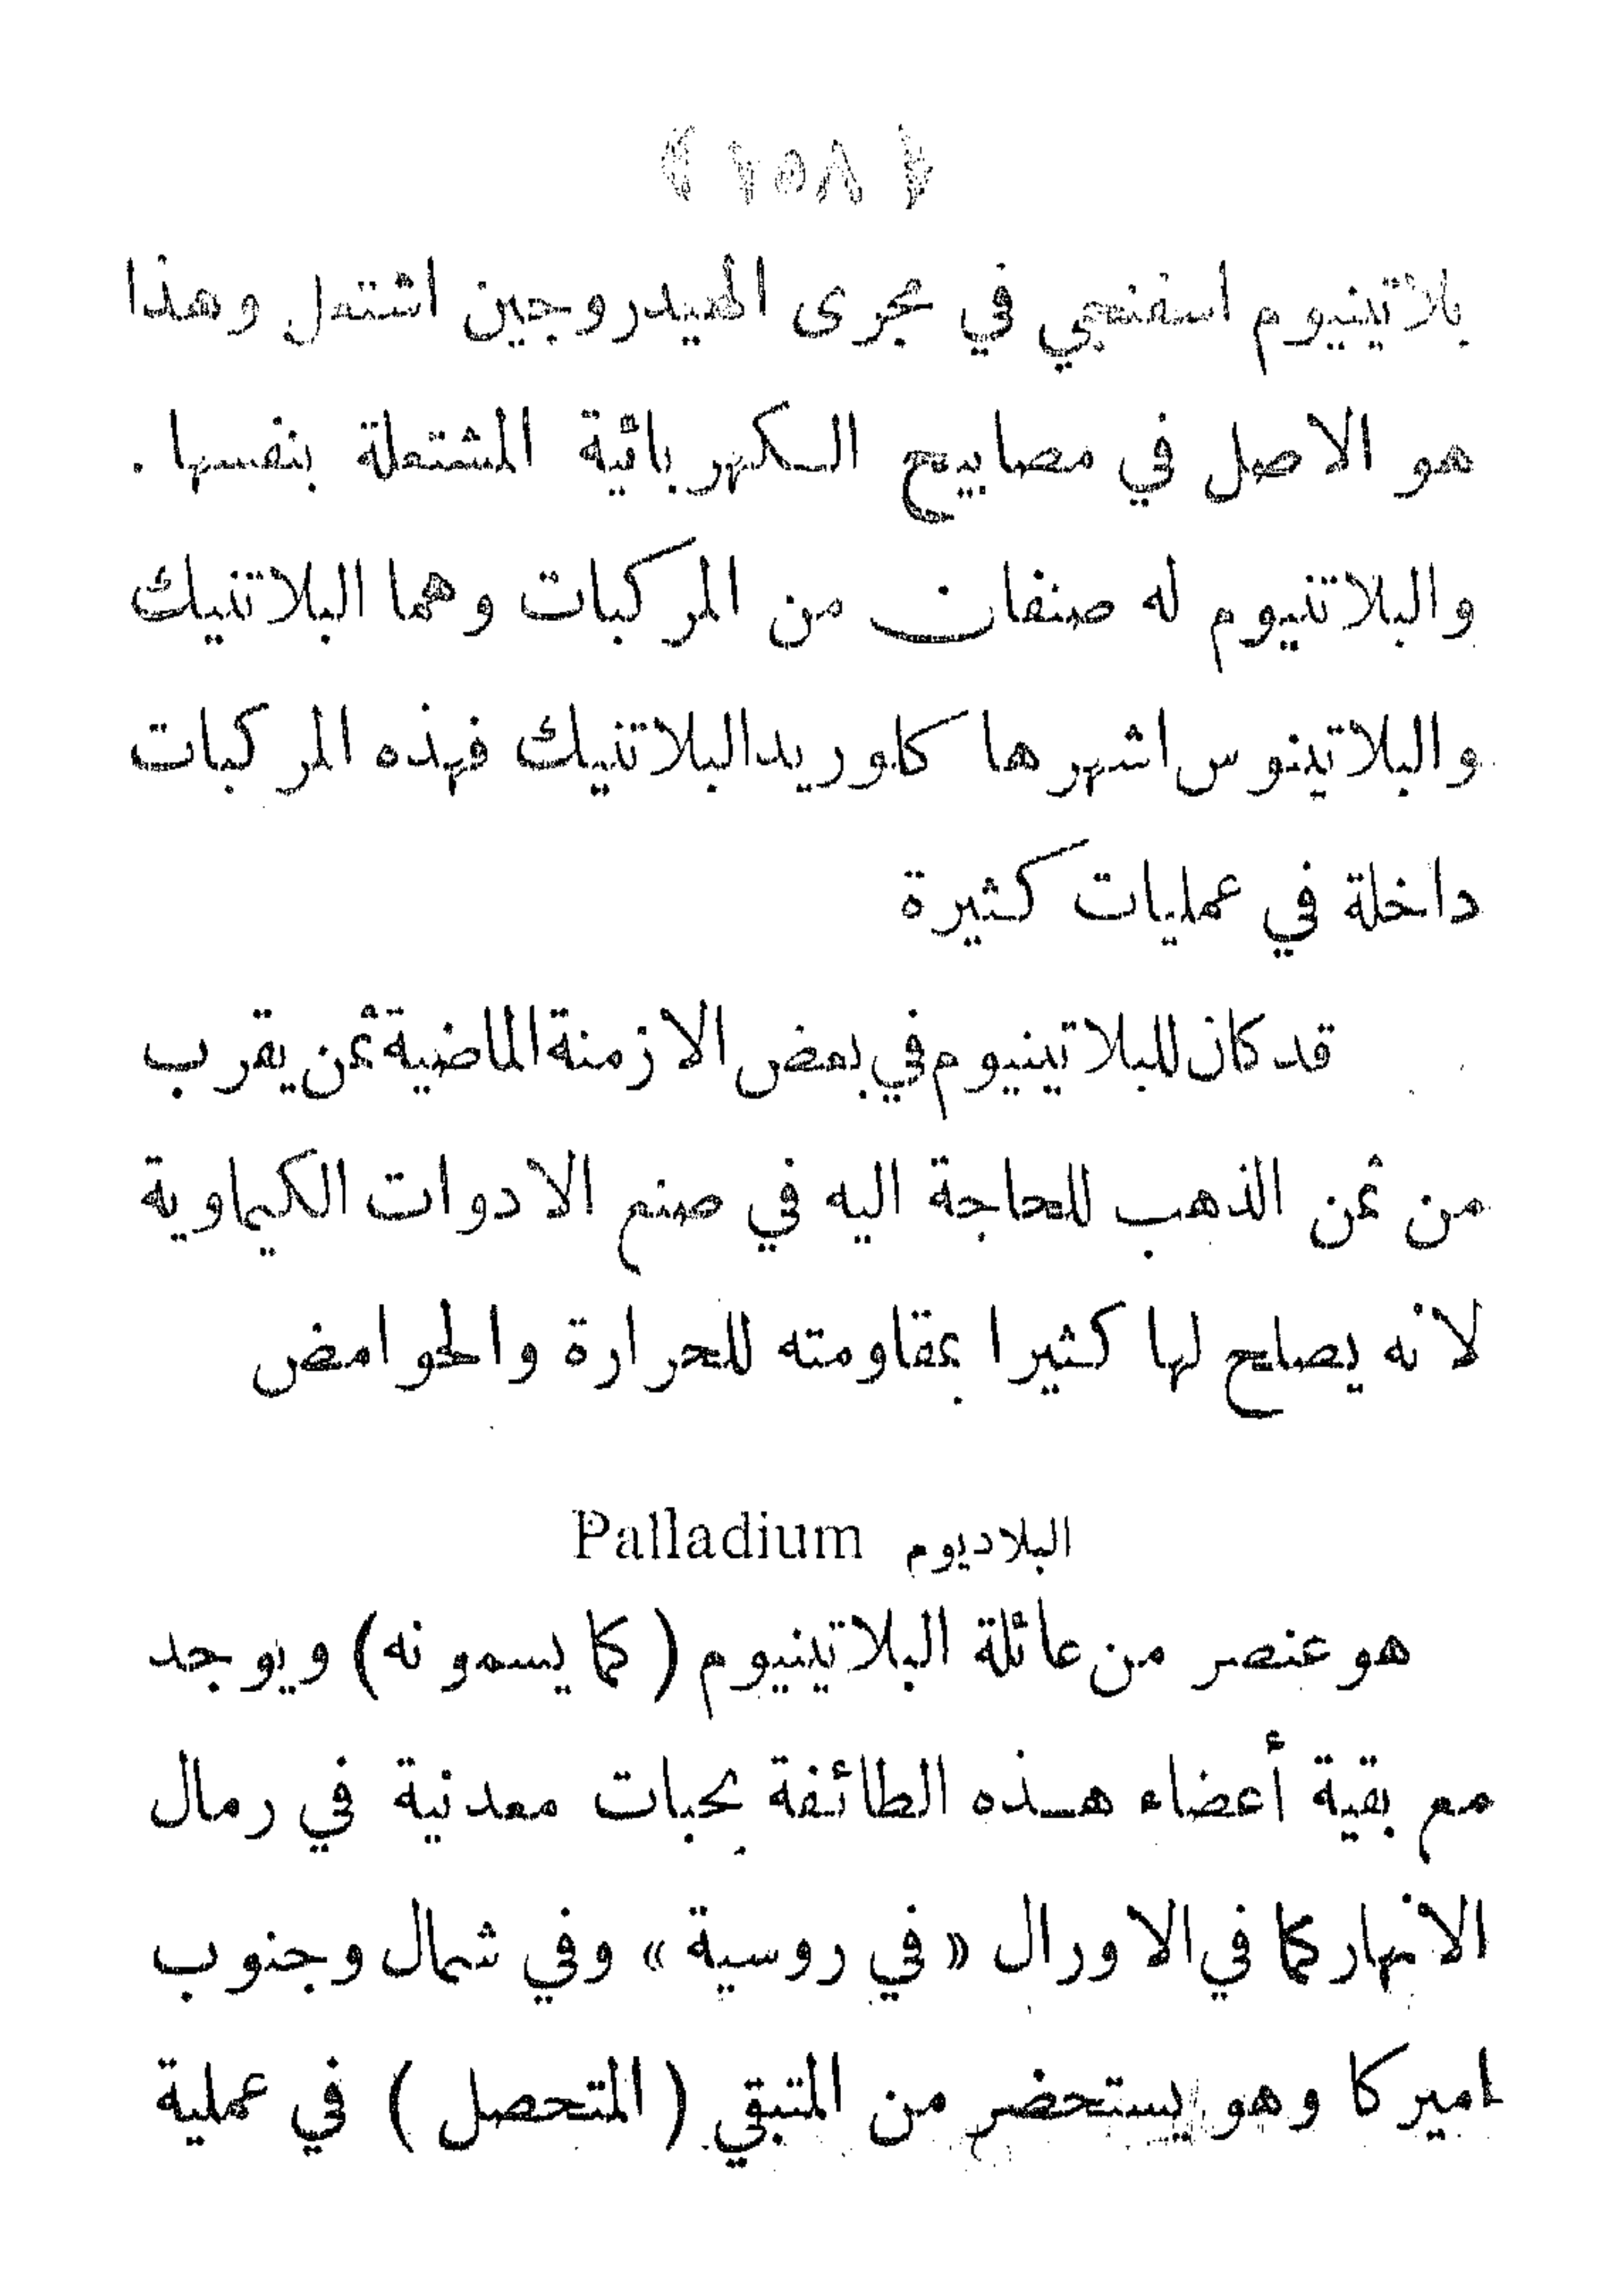 ﴿ ٢٥٨ ﴾
بلاتينيوم اسفنجي في مجرى الهيدروجين اشتعل وهذا
هو الاصل في مصابيح الكهربائية المشتعلة بنفسها .
والبلاتنيوم له صنفان من المركبات وهما البلاتنيك
والبلاتينوس اشهرها كلوريدالبلاتنيك فهذه المركبات
داخلة في عمليات كثيرة
قد كان للبلاتينيوم في بعض الازمنة الماضية ثمن يقرب
من ثمن الذهب للحاجة اليه في صنع الادوات الكيماوية
لانه يصلح لها كثيرا بمقاومته للحرارة والحوامض
البلاديوم Palladium
هو عنصر من عائلة البلاتينيوم ( كما يسمونه) ويوجد
مع بقية أعضاء هذه الطائفة بحبات معدنية في رمال
الانهار كما في الاورال « في روسية » وفي شمال وجنوب
اميركا وهو يستحضر من المتبقي ( المتحصل ) في عملية